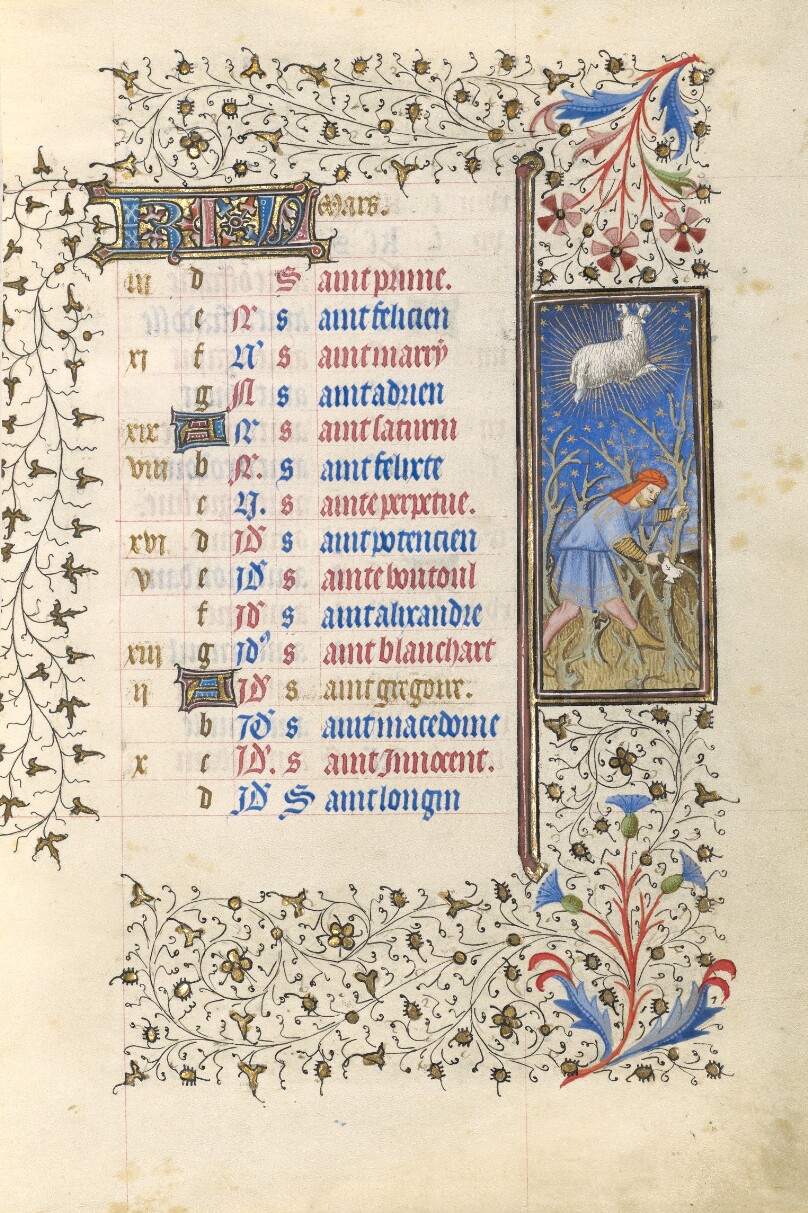 KL Mars.
iii d Saint prime.
e N s aint felicien
xi f N s aint marry
g N s aint adrien
xix A N s aint saturni
viii b N. s aint felixte
c N. s ainte perpetue.
xvi d Id s aint potencien
v e Id s ainte boutoul
f Id s aint alixandre
xiii g Id s aint blanchart
ii A Id s aint gregoire.
b Id s aint macedoine
x c Id. s aint Innocent.
d Id Saint longin